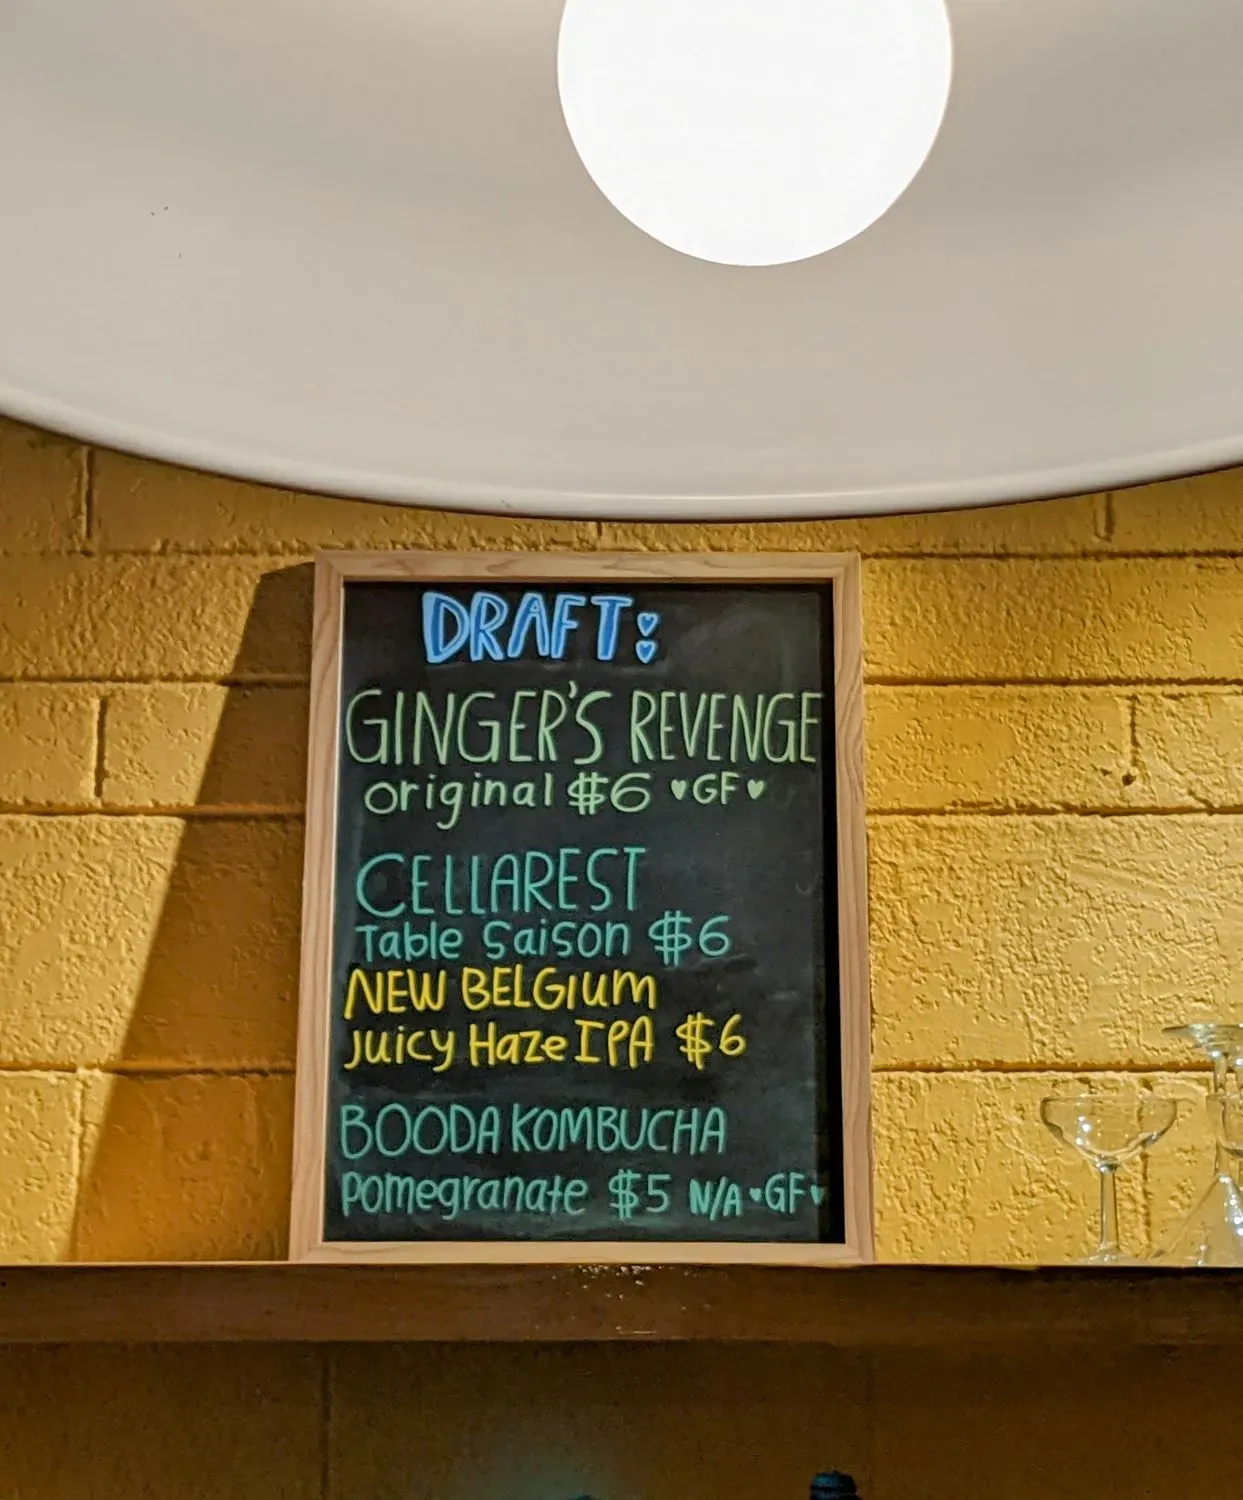 DRAFT:
GINGER'S REVENGE
original $6 ♥GF♥
CELLAREST
Table Saison $6
NEW BELGIUM
Juicy Haze IPA $6
BOODA KOMBUCHA
pomegranate $5 N/A ♥GF♥